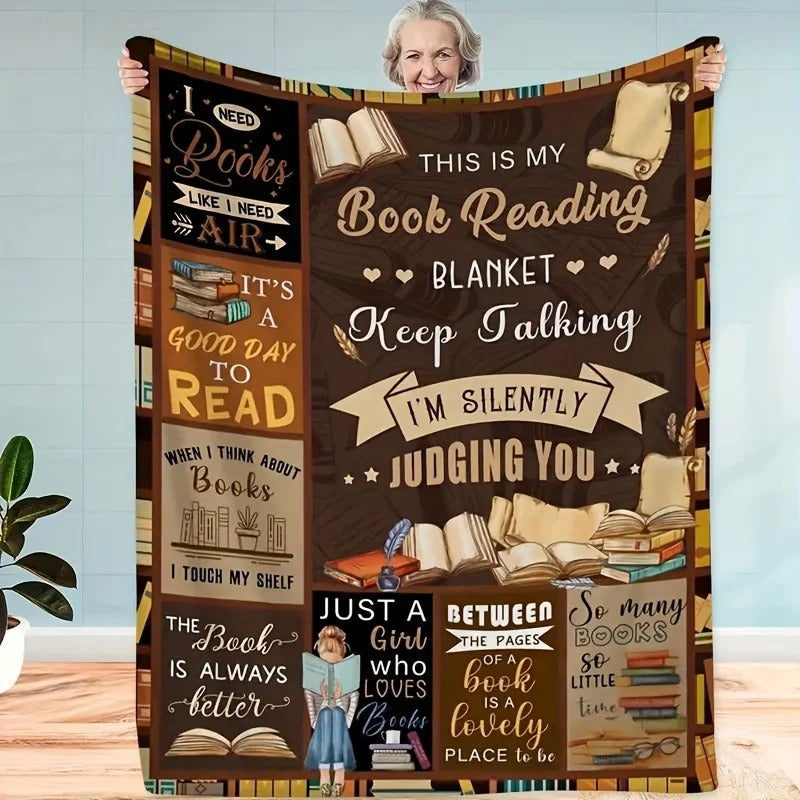 I NEED
Books
LIKE I NEED
AIR
THIS IS MY
Book Reading
BLANKET
Keep Talking
I'M SILENTLY
JUDGING YOU
IT'S
A
GOOD DAY
TO
READ
WHEN I THINK ABOUT
Books
I TOUCH MY SHELF
THE
Book
IS ALWAYS
better
JUST A
Girl
who
LOVES
Books
BETWEEN
THE PAGES
OF A
book
IS A
lovely
PLACE to be
So many
BOOKS
SO
LITTLE
time